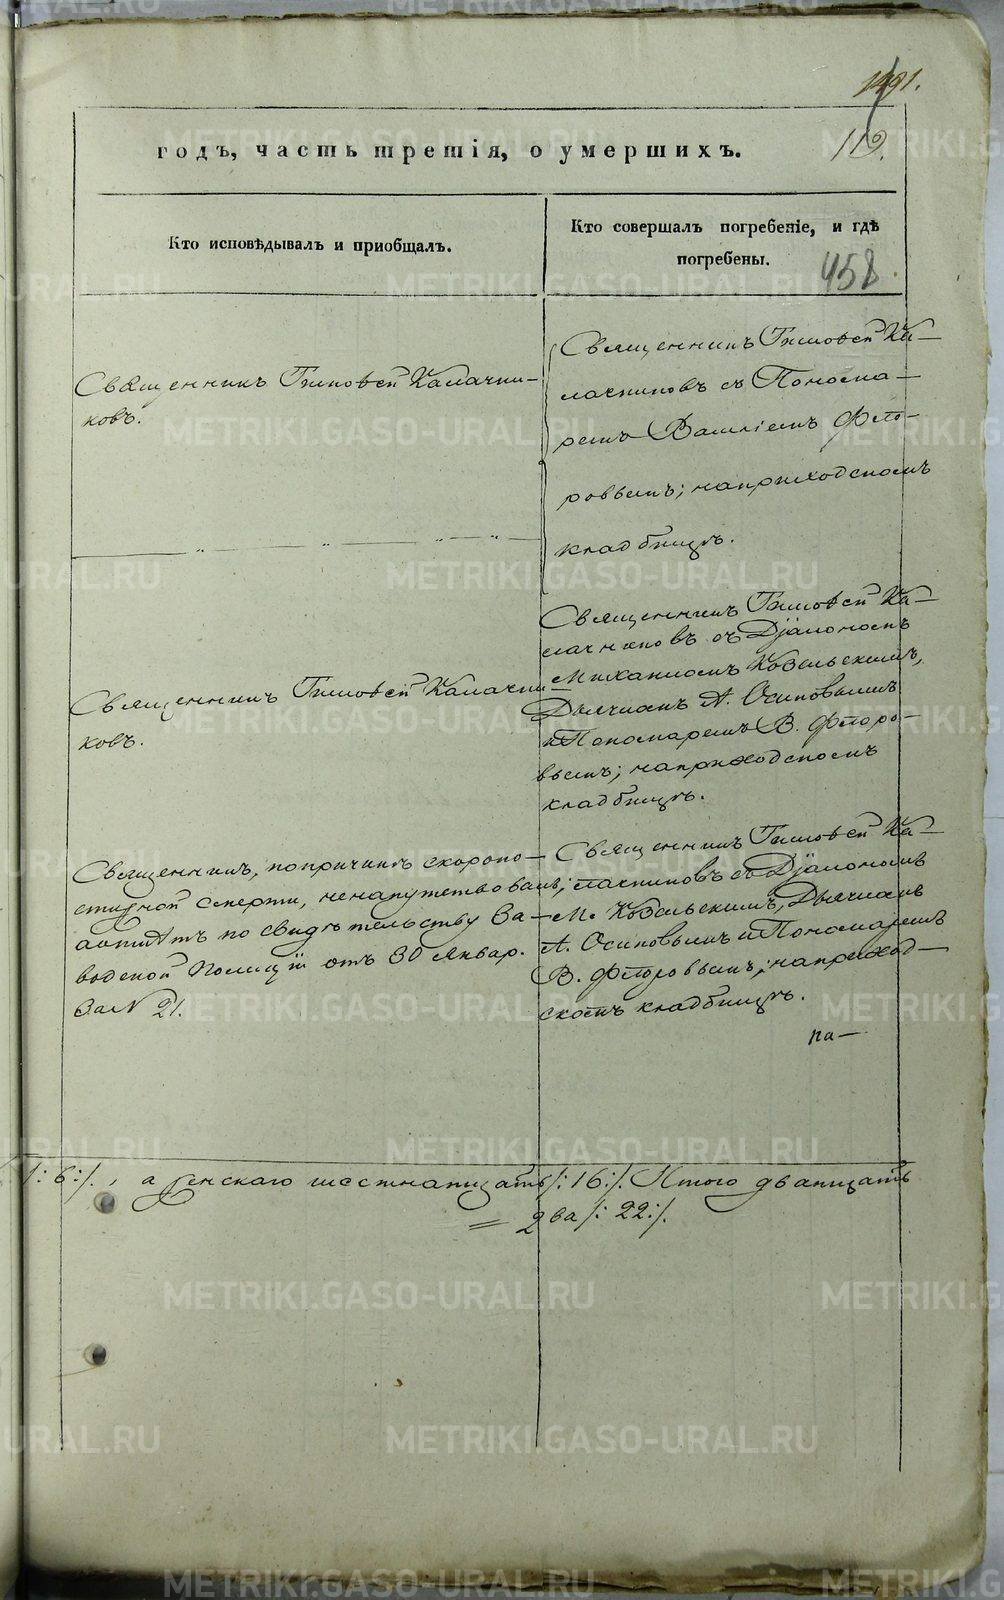 1491.
119.
годъ, часть третія, о умершихъ.
Кто исповѣдывалъ и пріобщалъ.
Кто совершалъ погребеніе, и гдѣ
погребены.
458
Священникъ Тимоѳей Калачни-
ковъ.
Священникъ Тимоѳей Ка-
лачниковъ съ Понома-
ремъ Василіемъ Ѳедо-
ровымъ; на приходскомъ
кладбищѣ.
Священникъ Тимоѳей Калачни-
ковъ.
Священникъ Тимоѳей Ка-
лачниковъ съ Діакономъ
Михаиломъ Кобельскимъ,
Дьячкомъ А. Осиповымъ
и Пономаремъ В. Ѳедоро-
вымъ; на приходскомъ
кладбищѣ.
Священникъ, по причинѣ скоропо-
стижной смерти, не напутствовалъ;
а отпѣтъ по свидѣтельству За-
водской Полиціи отъ 30 Январ.
За № 21.
Священникъ Тимоѳей Ка-
лачниковъ съ Діакономъ
М. Кобельскимъ, Дьячкомъ
А. Осиповымъ и Пономаремъ
В. Ѳедоровымъ; на приход-
скомъ кладбищѣ.
па-
/: 6 :/., а женскаго шестнатцать /: 16 :/. Итого дватцать
= два /: 22 :/.
METRIKI.GASO-URAL.RU